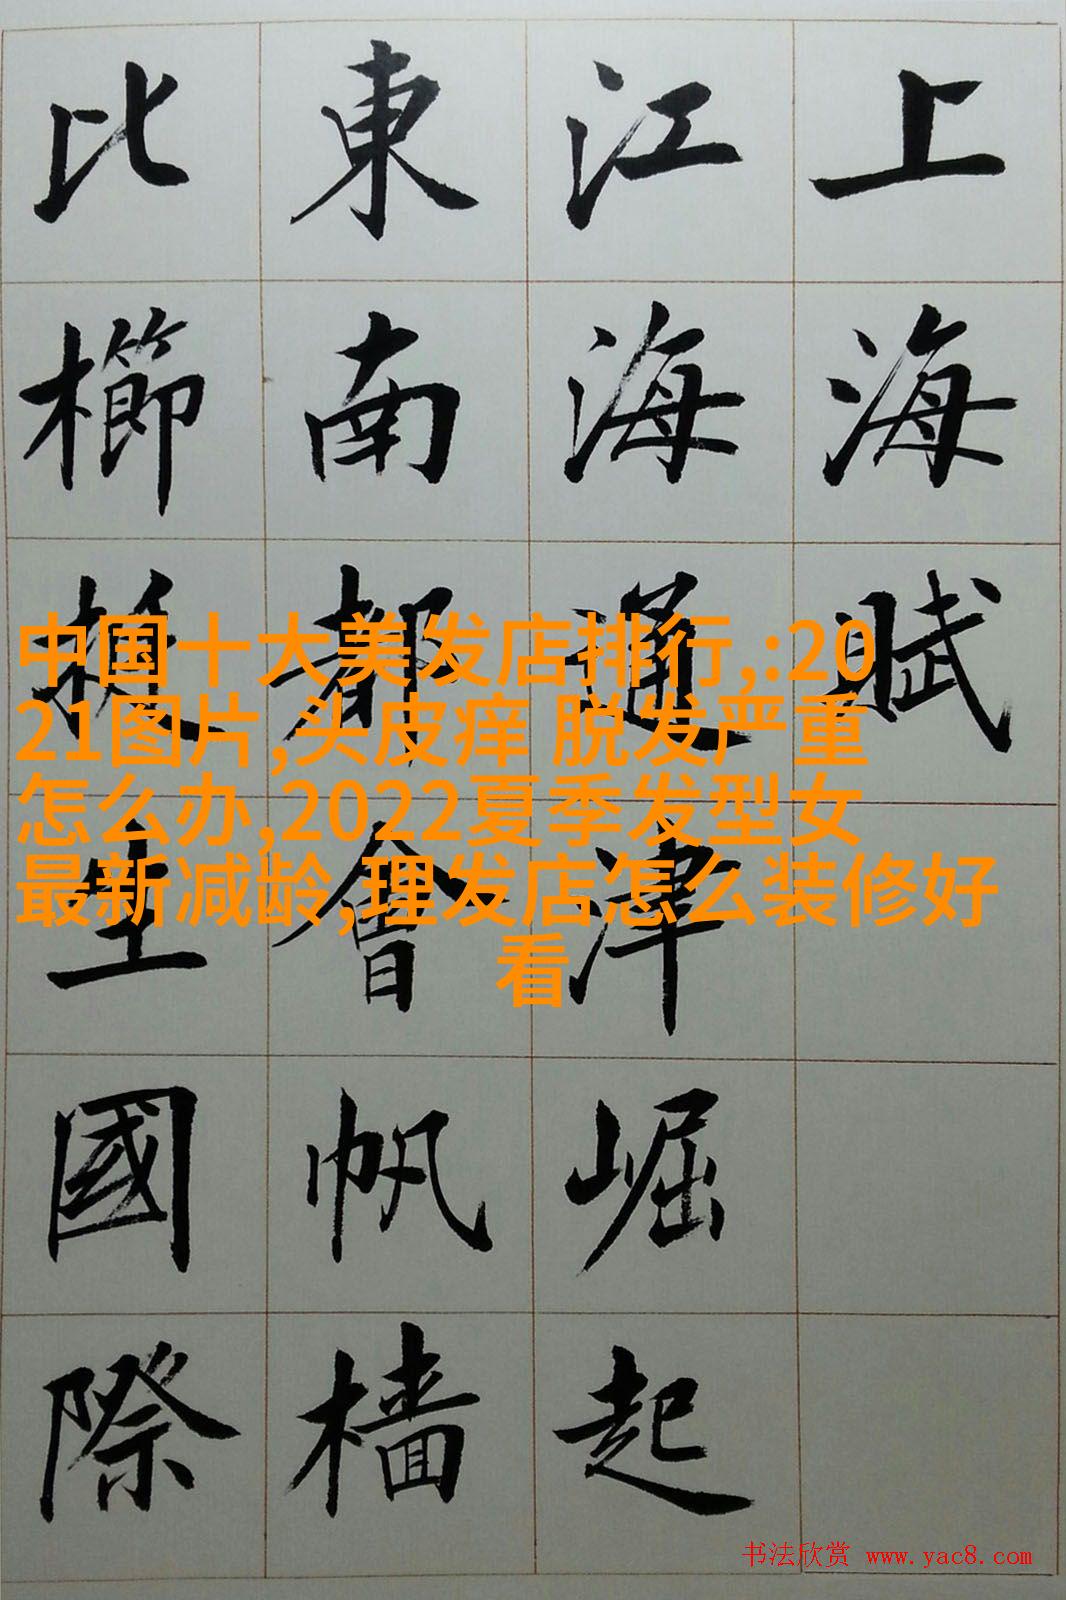 上海賦
江海通津崛起
東南都會帆檣
比櫛挺生國際
中国十大美发店排行,:20
21图片,头皮痒 脱发严重
怎么办,2022夏季发型女
最新减龄,理发店怎么装修好
看
书法欣赏 www.yac8.com